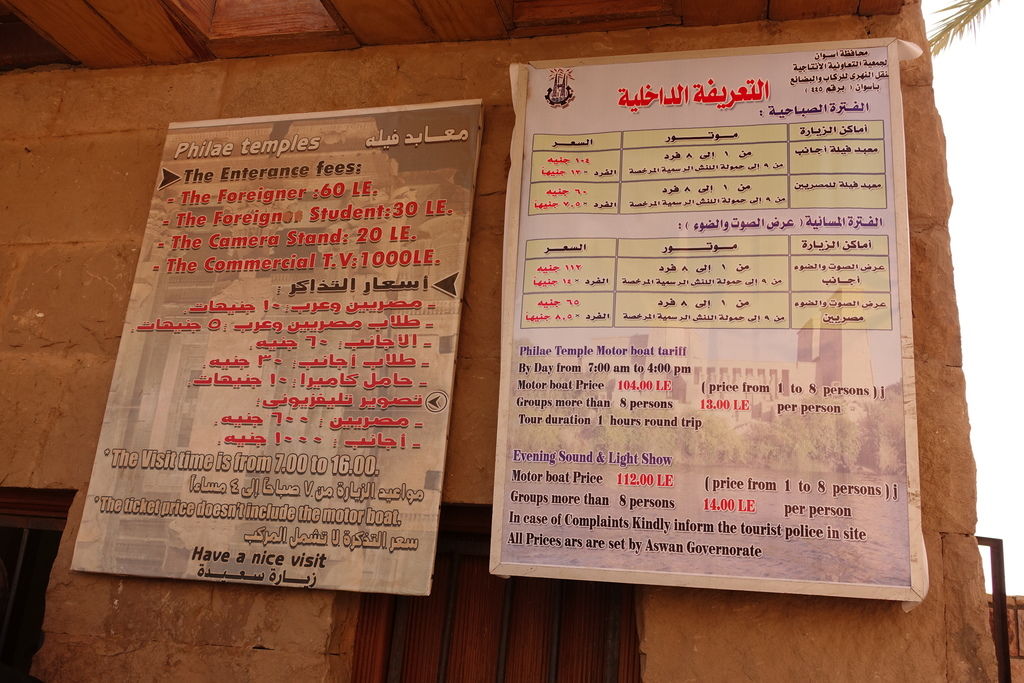 Philae temples معابد فيله
The Enterance fees:
- The Foreigner :60 LE.
- The Foreigner Student:30 LE.
- The Camera Stand: 20 LE.
- The Commercial T.V:1000LE.
أسعار التذاكر:
- مصريين وعرب : ١٠ جنيهات
- طلاب مصريين وعرب : ٥ جنيهات
- الأجانب : ٦٠ جنيه
- طلاب أجانب : ٣٠ جنيه
- حامل كاميرا : ١٠ جنيهات
تصوير تليفزيونى :
- مصريين : ٦٠٠ جنيه
- أجانب : ١٠٠٠ جنيه
* The Visit time is from 7.00 to 16.00.
مواعيد الزيارة من ٧ صباحاً إلى ٤ مساءاً
* The ticket price doesn't include the motor boat.
سعر التذكرة لا تشمل المركب
Have a nice visit
زيارة سعيدة
محافظة أسوان
الجمعية التعاونية الأنتاجية
للنقل النهرى للركاب والبضائع
بأسوان ( برقم ٤٤٥ )
التعريفة الداخلية
الفترة الصباحية :
أماكن الزيارة موتور السعر
معبد فيلة أجانب من ١ إلى ٨ فرد ١٠٤ جنيه
من ٩ إلى حمولة اللنش الرسمية المرخصة الفرد × ١٣ جنيها
معبد فيلة للمصريين من ١ إلى ٨ فرد ٦٠ جنيه
من ٩ إلى حمولة اللنش الرسمية المرخصة الفرد × ٧,٥ جنيها
الفترة المسائية ( عرض الصوت والضوء ) :
أماكن الزيارة موتور السعر
عرض الصوت والضوء من ١ إلى ٨ فرد ١١٢ جنيه
أجانب من ٩ إلى حمولة اللنش الرسمية المرخصة الفرد × ١٤ جنيها
عرض الصوت والضوء من ١ إلى ٨ فرد ٦٥ جنيه
مصريين من ٩ إلى حمولة اللنش الرسمية المرخصة الفرد × ٨,٥ جنيها
Philae Temple Motor boat tariff
By Day from 7:00 am to 4:00 pm
Motor boat Price 104.00 LE ( price from 1 to 8 persons ) j
Groups more than 8 persons 13.00 LE per person
Tour duration 1 hours round trip
Evening Sound & Light Show
Motor boat Price 112.00 LE ( price from 1 to 8 persons ) j
Groups more than 8 persons 14.00 LE per person
In case of Complaints Kindly inform the tourist police in site
All Prices ars are set by Aswan Governorate